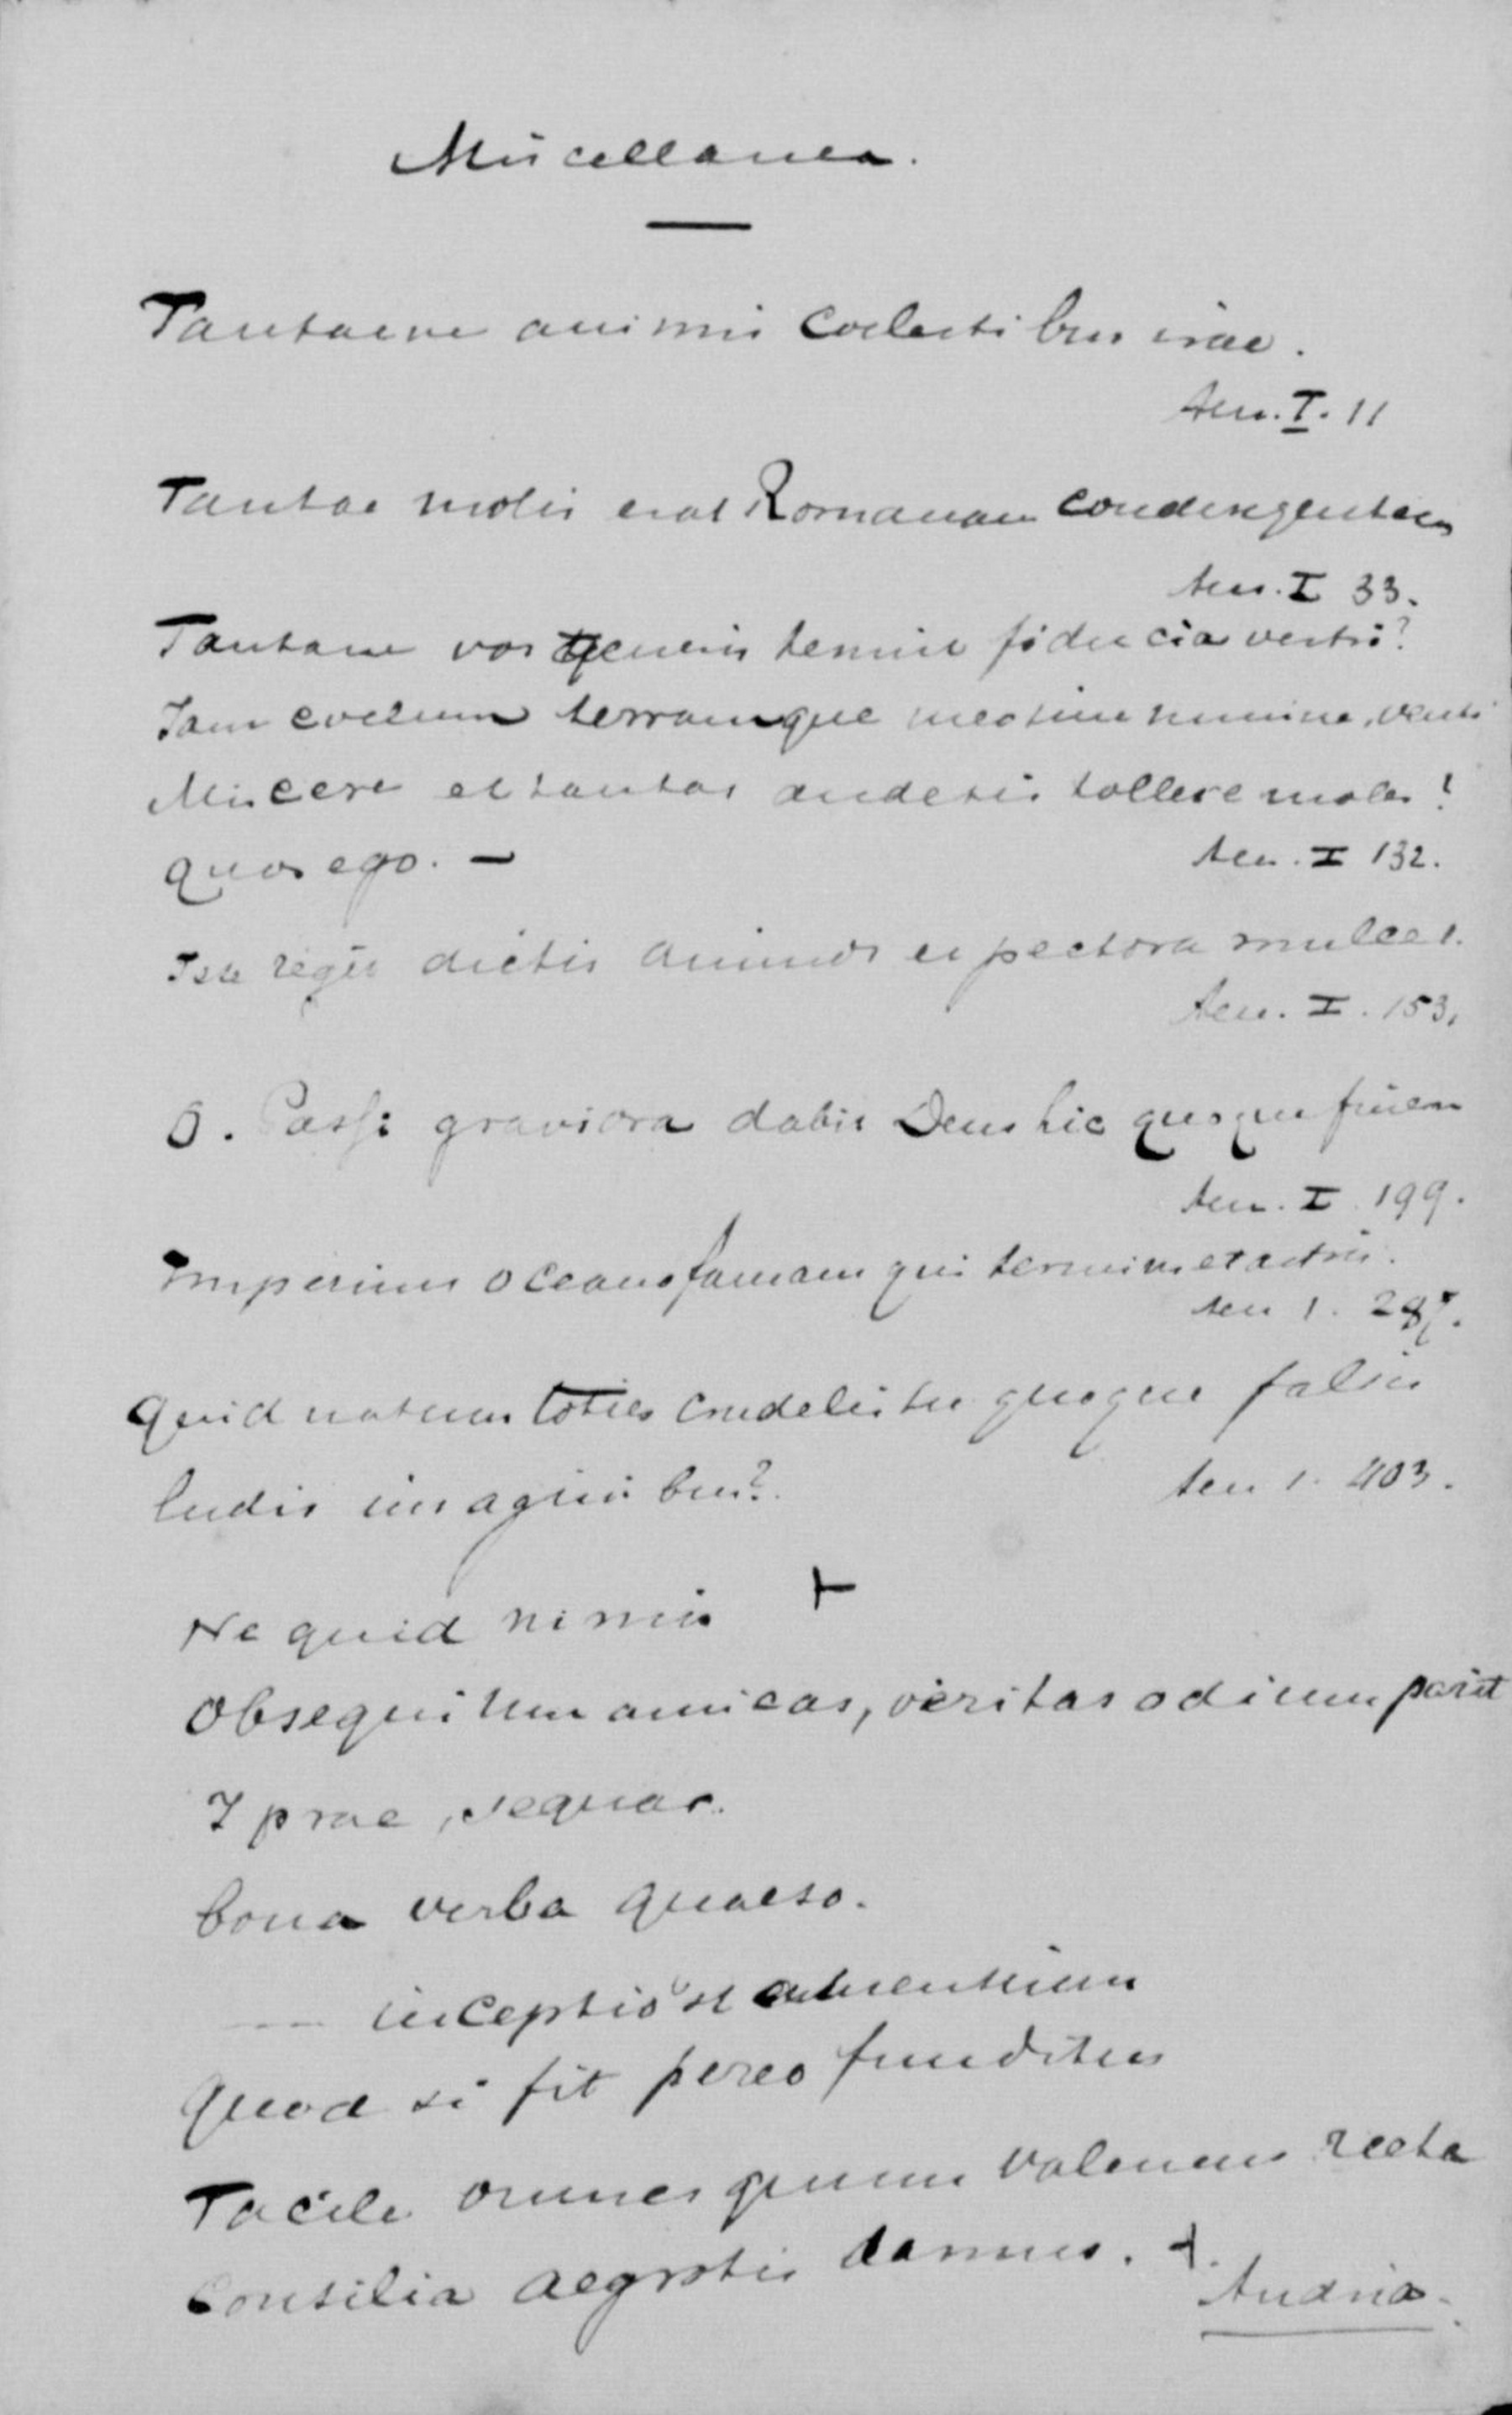 Miscellanea.
Tantaene animis coelestibus irae.
Aen. I. 11
Tantae molis erat Romanam condere gentem
Aen. I 33.
Tantane vos generis tenuit fiducia vestri?
Iam coelum terramque meo sine numine, venti
Miscere et tantas audetis tollere moles!
quos ego. —
Aen. I 132.
Iste regit dictis animos et pectora mulcet.
Aen. I. 153.
O. Passi graviora dabit Deus his quoque finem
Aen. I. 199.
Imperium oceano famam qui terminet astris.
Aen 1. 287.
Quid natum toties crudelis tu quoque falsis
ludis imaginibus?
Aen 1. 403.
Ne quid nimis +
Obsequium amicos, veritas odium parit
I prae, sequar.
bona verba quaeso.
— inceptio'st amentium
Quod si fit pereo funditus
Facile omnes quum valemus recta
Consilia aegrotis damus. +.
Andria.